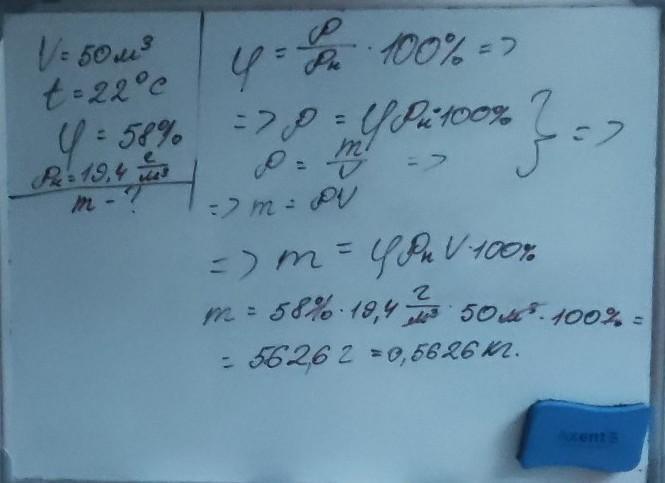 V = 50 м³
t = 22°C
φ = 58%
ρн = 19,4 г/м³
m - ?
φ = ρ/ρн · 100% =>
=> ρ = φρн · 100%
ρ = m/V =>
} =>
=> m = ρV
=> m = φρн V · 100%
m = 58% · 19,4 г/м³ · 50 м³ · 100% =
= 562,6 г = 0,5626 кг.
Axent